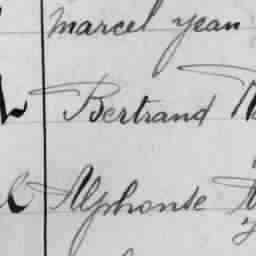 Marcel Jean
Bertrand
Alphonse